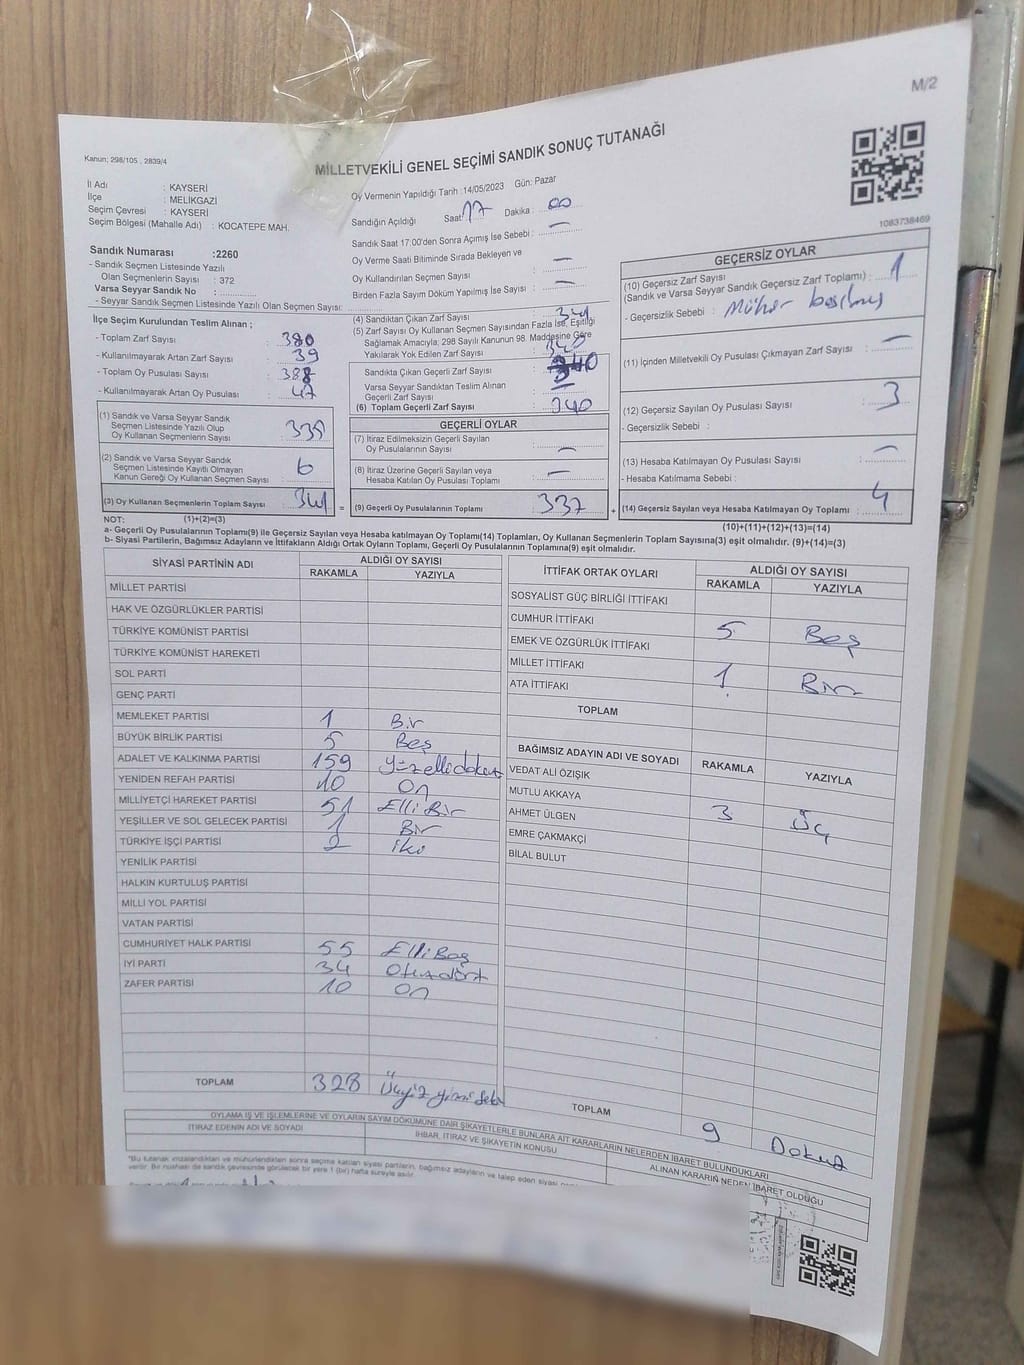 M/2
Kanun; 298/105 , 2839/4
MİLLETVEKİLİ GENEL SEÇİMİ SANDIK SONUÇ TUTANAĞI
1083738469
İl Adı : KAYSERİ
İlçe : MELİKGAZİ
Seçim Çevresi : KAYSERİ
Seçim Bölgesi (Mahalle Adı) : KOCATEPE MAH.
Oy Vermenin Yapıldığı Tarih :14/05/2023 Gün: Pazar
Sandığın Açıldığı Saat 17 Dakika : 00
Sandık Saat 17:00'den Sonra Açılmış İse Sebebi : —
Oy Verme Saati Bitiminde Sırada Bekleyen ve
Oy Kullandırılan Seçmen Sayısı : —
Birden Fazla Sayım Döküm Yapılmış İse Sayısı : —
Sandık Numarası :2260
- Sandık Seçmen Listesinde Yazılı
Olan Seçmenlerin Sayısı : 372
Varsa Seyyar Sandık No :
- Seyyar Sandık Seçmen Listesinde Yazılı Olan Seçmen Sayısı:
İlçe Seçim Kurulundan Teslim Alınan ;
- Toplam Zarf Sayısı : 380
- Kullanılmayarak Artan Zarf Sayısı : 39
- Toplam Oy Pusulası Sayısı : 388
- Kullanılmayarak Artan Oy Pusulası : 47
(1) Sandık ve Varsa Seyyar Sandık
Seçmen Listesinde Yazılı Olup
Oy Kullanan Seçmenlerin Sayısı : 335
(2) Sandık ve Varsa Seyyar Sandık
Seçmen Listesinde Kayıtlı Olmayan
Kanun Gereği Oy Kullanan Seçmen Sayısı : 6
(3) Oy Kullanan Seçmenlerin Toplam Sayısı : 341
(4) Sandıktan Çıkan Zarf Sayısı : 341
(5) Zarf Sayısı Oy Kullanan Seçmen Sayısından Fazla İse, Eşitliği
Sağlamak Amacıyla; 298 Sayılı Kanunun 98. Maddesine Göre
Yakılarak Yok Edilen Zarf Sayısı :
Sandıkta Çıkan Geçerli Zarf Sayısı :
Varsa Seyyar Sandıktan Teslim Alınan
Geçerli Zarf Sayısı : —
(6) Toplam Geçerli Zarf Sayısı : 340
GEÇERLİ OYLAR
(7) İtiraz Edilmeksizin Geçerli Sayılan
Oy Pusulalarının Sayısı : —
(8) İtiraz Üzerine Geçerli Sayılan veya
Hesaba Katılan Oy Pusulası Toplamı : —
= (9) Geçerli Oy Pusulalarının Toplamı : 337
GEÇERSİZ OYLAR
(10) Geçersiz Zarf Sayısı
(Sandık ve Varsa Seyyar Sandık Geçersiz Zarf Toplamı) : 1
- Geçersizlik Sebebi : Mühür basılmış
(11) İçinden Milletvekili Oy Pusulası Çıkmayan Zarf Sayısı : —
(12) Geçersiz Sayılan Oy Pusulası Sayısı : 3
- Geçersizlik Sebebi :
(13) Hesaba Katılmayan Oy Pusulası Sayısı : —
- Hesaba Katılmama Sebebi :
+ (14) Geçersiz Sayılan veya Hesaba Katılmayan Oy Toplamı : 4
NOT: (1)+(2)=(3)
(10)+(11)+(12)+(13)=(14)
a- Geçerli Oy Pusulalarının Toplamı(9) ile Geçersiz Sayılan veya Hesaba katılmayan Oy Toplamı(14) Toplamları, Oy Kullanan Seçmenlerin Toplam Sayısına(3) eşit olmalıdır. (9)+(14)=(3)
b- Siyasi Partilerin, Bağımsız Adayların ve İttifakların Aldığı Ortak Oyların Toplamı, Geçerli Oy Pusulalarının Toplamına(9) eşit olmalıdır.
SİYASİ PARTİNİN ADI ALDIĞI OY SAYISI
RAKAMLA YAZIYLA
MİLLET PARTİSİ
HAK VE ÖZGÜRLÜKLER PARTİSİ
TÜRKİYE KOMÜNİST PARTİSİ
TÜRKİYE KOMÜNİST HAREKETİ
SOL PARTİ
GENÇ PARTİ
MEMLEKET PARTİSİ 1 Bir
BÜYÜK BİRLİK PARTİSİ 5 Beş
ADALET VE KALKINMA PARTİSİ 159 Yüzellidokuz
YENİDEN REFAH PARTİSİ 10 On
MİLLİYETÇİ HAREKET PARTİSİ 51 Elli Bir
YEŞİLLER VE SOL GELECEK PARTİSİ 1 Bir
TÜRKİYE İŞÇİ PARTİSİ 2 iki
YENİLİK PARTİSİ
HALKIN KURTULUŞ PARTİSİ
MİLLİ YOL PARTİSİ
VATAN PARTİSİ
CUMHURİYET HALK PARTİSİ 55 Elli Beş
İYİ PARTİ 34 Otuzdört
ZAFER PARTİSİ 10 On
TOPLAM 328 Üçyüz yirmi sekiz
İTTİFAK ORTAK OYLARI ALDIĞI OY SAYISI
RAKAMLA YAZIYLA
SOSYALİST GÜÇ BİRLİĞİ İTTİFAKI
CUMHUR İTTİFAKI 5 Beş
EMEK VE ÖZGÜRLÜK İTTİFAKI
MİLLET İTTİFAKI 1 Bir
ATA İTTİFAKI
TOPLAM
BAĞIMSIZ ADAYIN ADI VE SOYADI RAKAMLA YAZIYLA
VEDAT ALİ ÖZIŞIK
MUTLU AKKAYA
AHMET ÜLGEN 3 Üç
EMRE ÇAKMAKÇİ
BİLAL BULUT
TOPLAM 9 Dokuz
OYLAMA İŞ VE İŞLEMLERİNE VE OYLARIN SAYIM DÖKÜMÜNE DAİR ŞİKAYETLERLE BUNLARA AİT KARARLARIN NELERDEN İBARET BULUNDUKLARI
İTİRAZ EDENİN ADI VE SOYADI İHBAR, İTİRAZ VE ŞİKAYETİN KONUSU ALINAN KARARIN NEDEN İBARET OLDUĞU
"Bu tutanak imzalandıktan ve mühürlendikten sonra seçime katılan siyasi partilerin, bağımsız adayların ve talep eden siyasi
verilir. Bir nüshası da sandık çevresinde görülecek bir yere 1 (bir) hafta süreyle asılır.